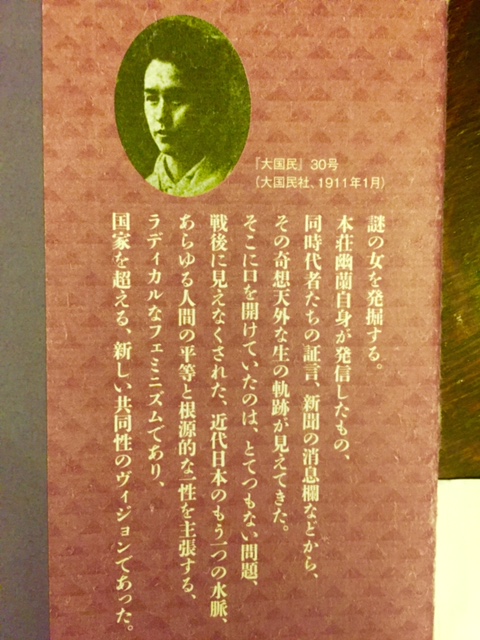 『大国民』30号
(大国民社、1911年1月)
謎の女を発掘する。
本荘幽蘭自身が発信したもの、
同時代者たちの証言、新聞の消息欄などから、
その奇想天外な生の軌跡が見えてきた。
そこに口を開けていたのは、とてつもない問題、
戦後に見えなくされた、近代日本のもう一つの水脈、
あらゆる人間の平等と根源的な一性を主張する、
ラディカルなフェミニズムであり、
国家を超える、新しい共同性のヴィジョンであった。